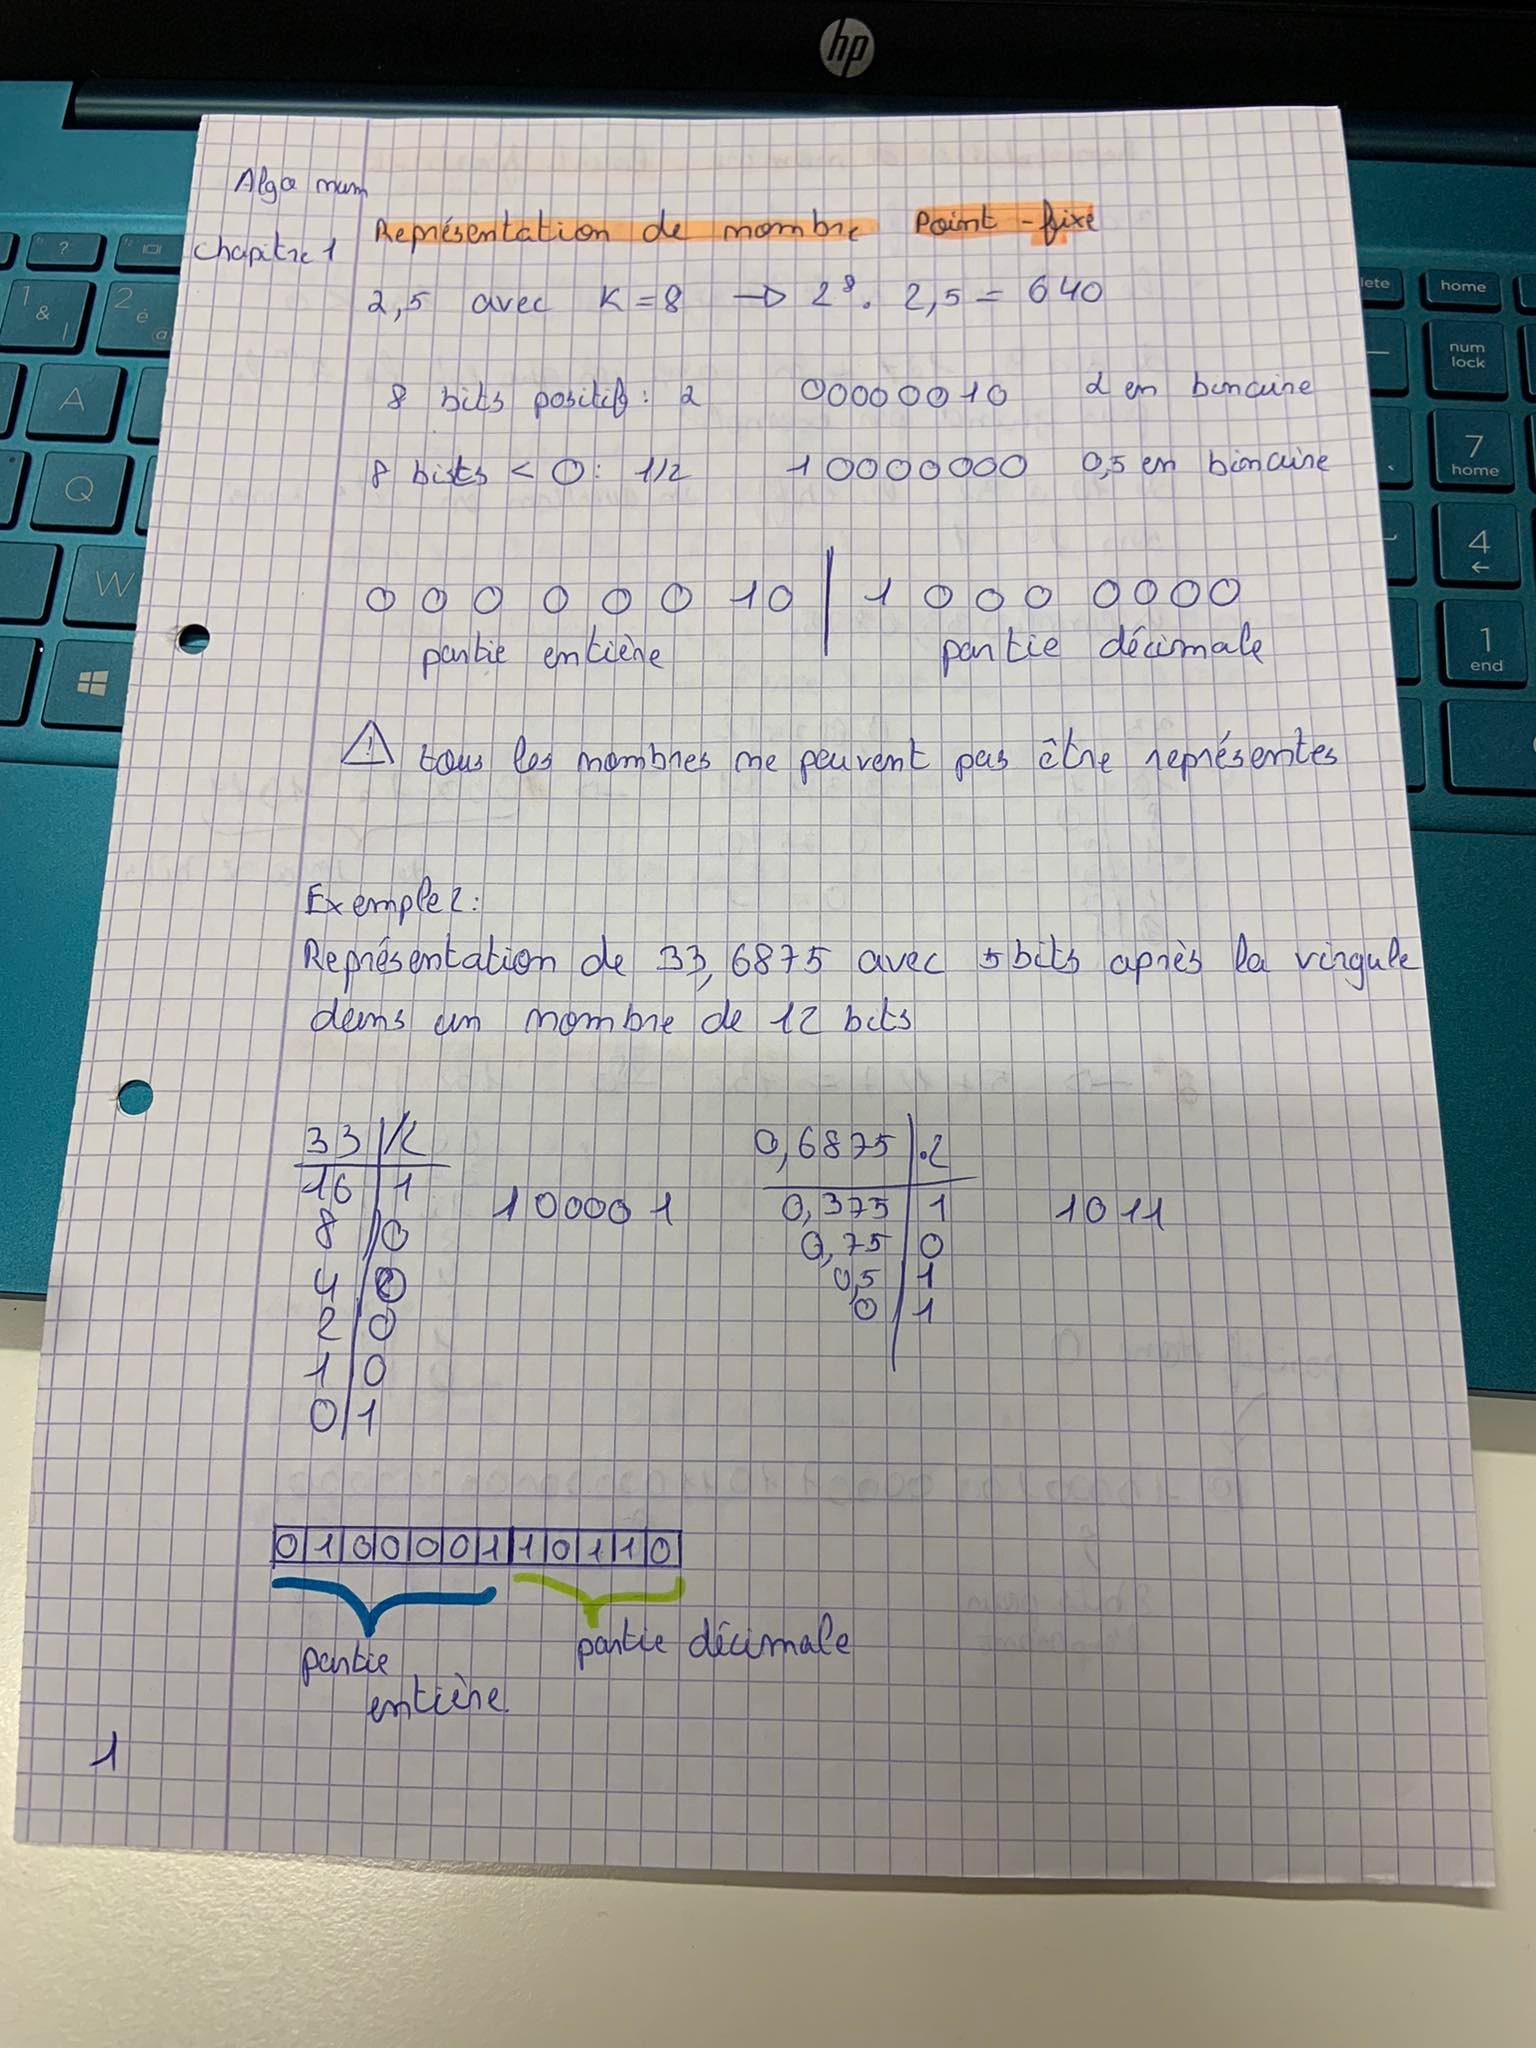 hp
Algo num
Chapitre 1
Représentation de nombre Point-fixe
2,5 avec K=8 → 2⁸. 2,5 = 640
8 bits positifs: 2 00000010 2 en binaire
8 bists < 0: 1/2 10000000 0,5 en binaire
0 0 0 0 0 0 1 0 | 1 0 0 0 0 0 0 0
partie entière partie décimale
⚠ tous les nombres ne peuvent pas être représentes
Exemple 2:
Représentation de 33,6875 avec 5 bits après la virgule
dans un nombre de 12 bits
33 | /2 0,6875 | .2
16 | 1 100001 0,375 | 1 1011
8 | 0 0,75 | 0
4 | 0 0,5 | 1
2 | 0 0 | 1
1 | 0
0 | 1
0 1 0 0 0 0 1 1 0 1 1 0
partie partie décimale
entière
1
?
1
&
2
é
A
Q
W
home
num
lock
7
home
4
←
1
end